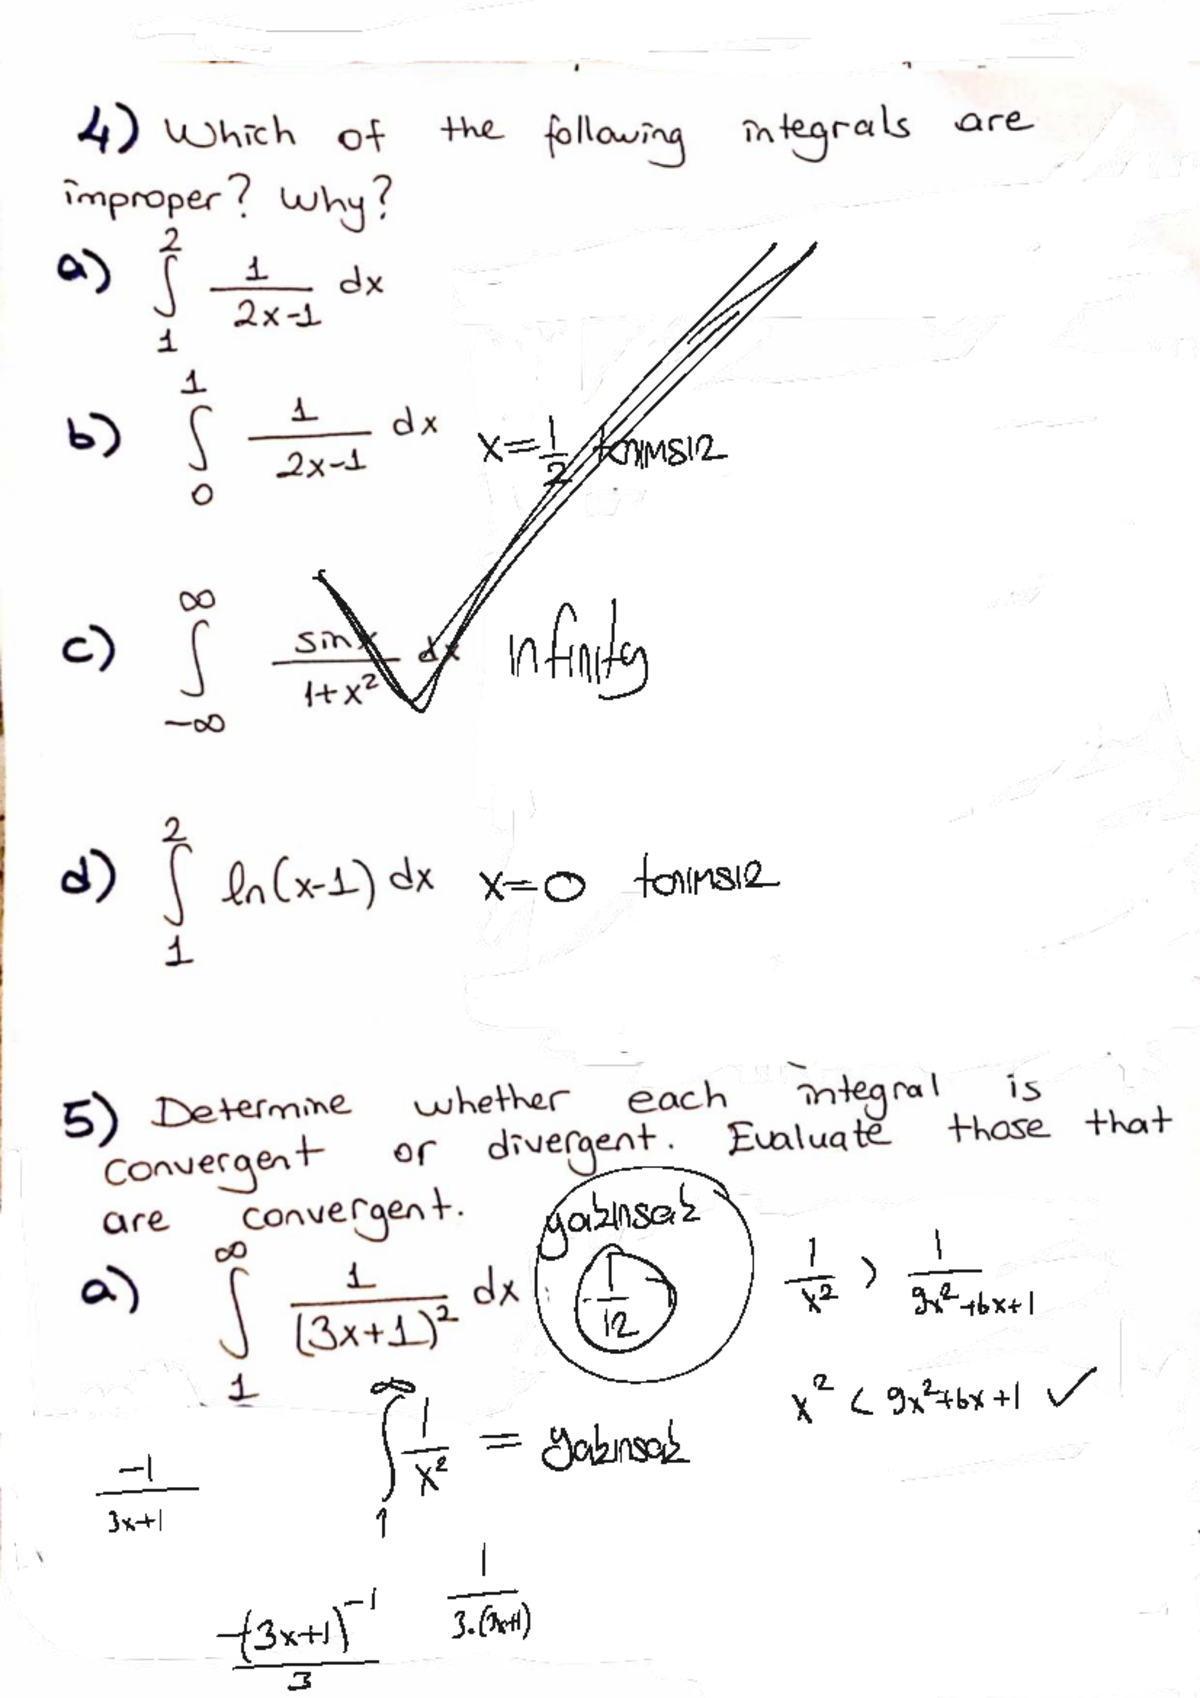 4) Which of the following integrals are
improper? Why?
a) ∫₁² 1/(2x-1) dx
b) ∫₀¹ 1/(2x-1) dx x=1/2 tanımsız
c) ∫₋∞^∞ sinx/(1+x²) dx infinity
d) ∫₁² ln(x-1) dx x=0 tanımsız
5) Determine whether each integral is
convergent or divergent. Evaluate those that
are convergent. yakınsak
a) ∫₁^∞ 1/(3x+1)² dx 1/12 1/x² > 1/(9x²+6x+1)
x² < 9x²+6x+1 ✓
∫₁^∞ 1/x² = yakınsak
-1/(3x+1)
-(3x+1)⁻¹/3 1/(3.(3x+1))